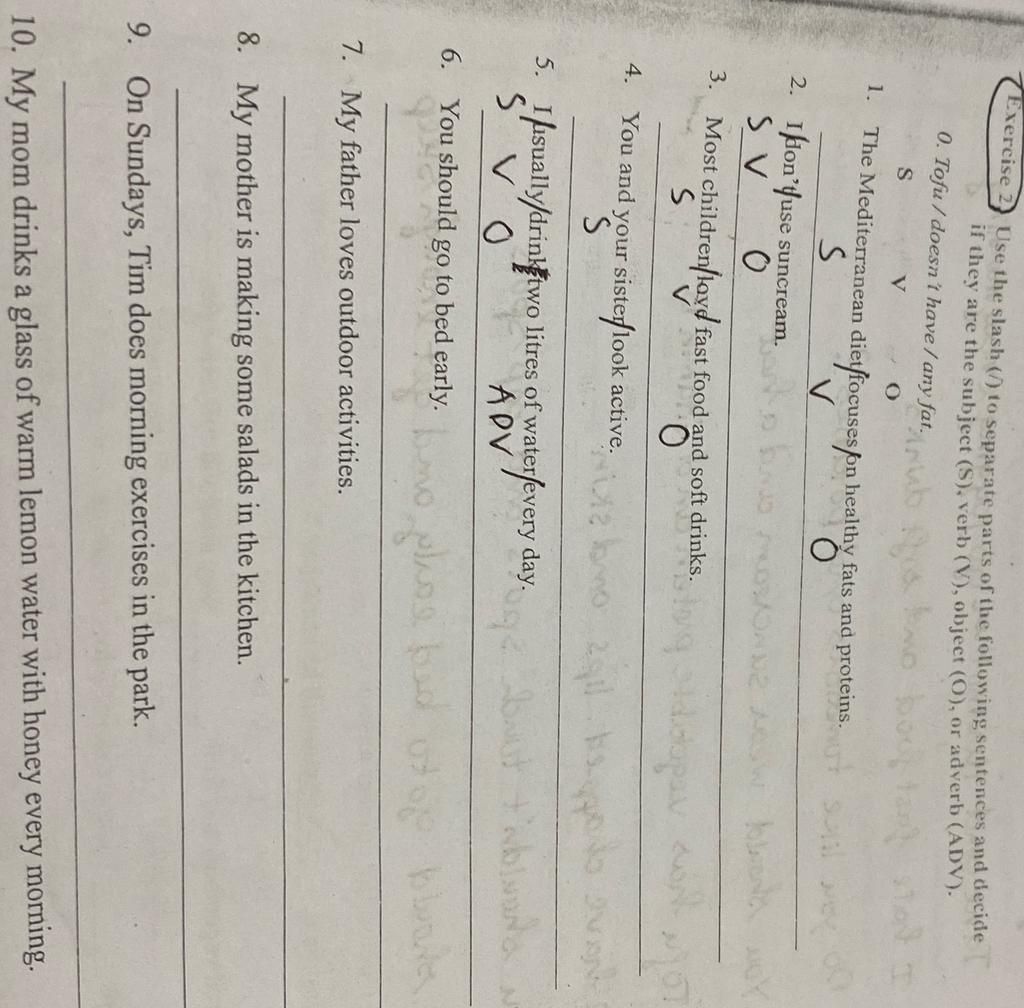 Exercise 2 Use the slash (/) to separate parts of the following sentences and decide
if they are the subject (S), verb (V), object (O), or adverb (ADV).
0. Tofu / doesn't have / any fat.
S V O
1. The Mediterranean diet/focuses/on healthy fats and proteins.
S V O
2. I/don't/use suncream.
S V O
3. Most children/loved/fast food and soft drinks.
S V O
4. You and your sister/look active.
S
5. I/usually/drink/two litres of water/every day.
S V O ADV
6. You should go to bed early.
7. My father loves outdoor activities.
8. My mother is making some salads in the kitchen.
9. On Sundays, Tim does morning exercises in the park.
10. My mom drinks a glass of warm lemon water with honey every morning.